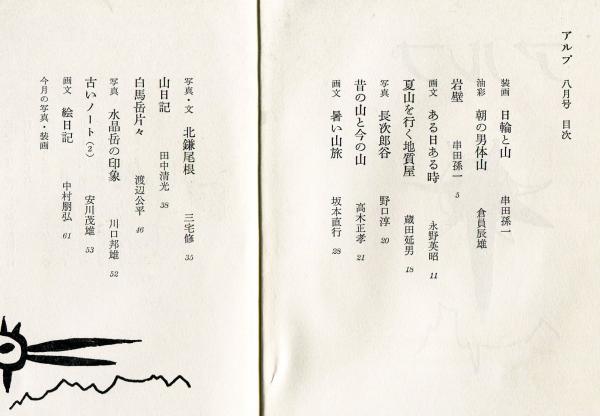 アルプ 八月号 目次
装画 日輪と山 串田孫一
油彩 朝の男体山 倉員辰雄
岩壁 串田孫一 5
画文 ある日ある時 永野英昭 11
夏山を行く地質屋 蔵田延男 18
写真 長次郎谷 野口淳 20
昔の山と今の山 高木正孝 21
画文 暑い山旅 坂本直行 28
写真・文 北鎌尾根 三宅修 35
山日記 田中清光 38
白馬岳片々 渡辺公平 46
写真 水晶岳の印象 川口邦雄 52
古いノート(2) 安川茂雄 53
画文 絵日記 中村朋弘 61
今月の写真・装画